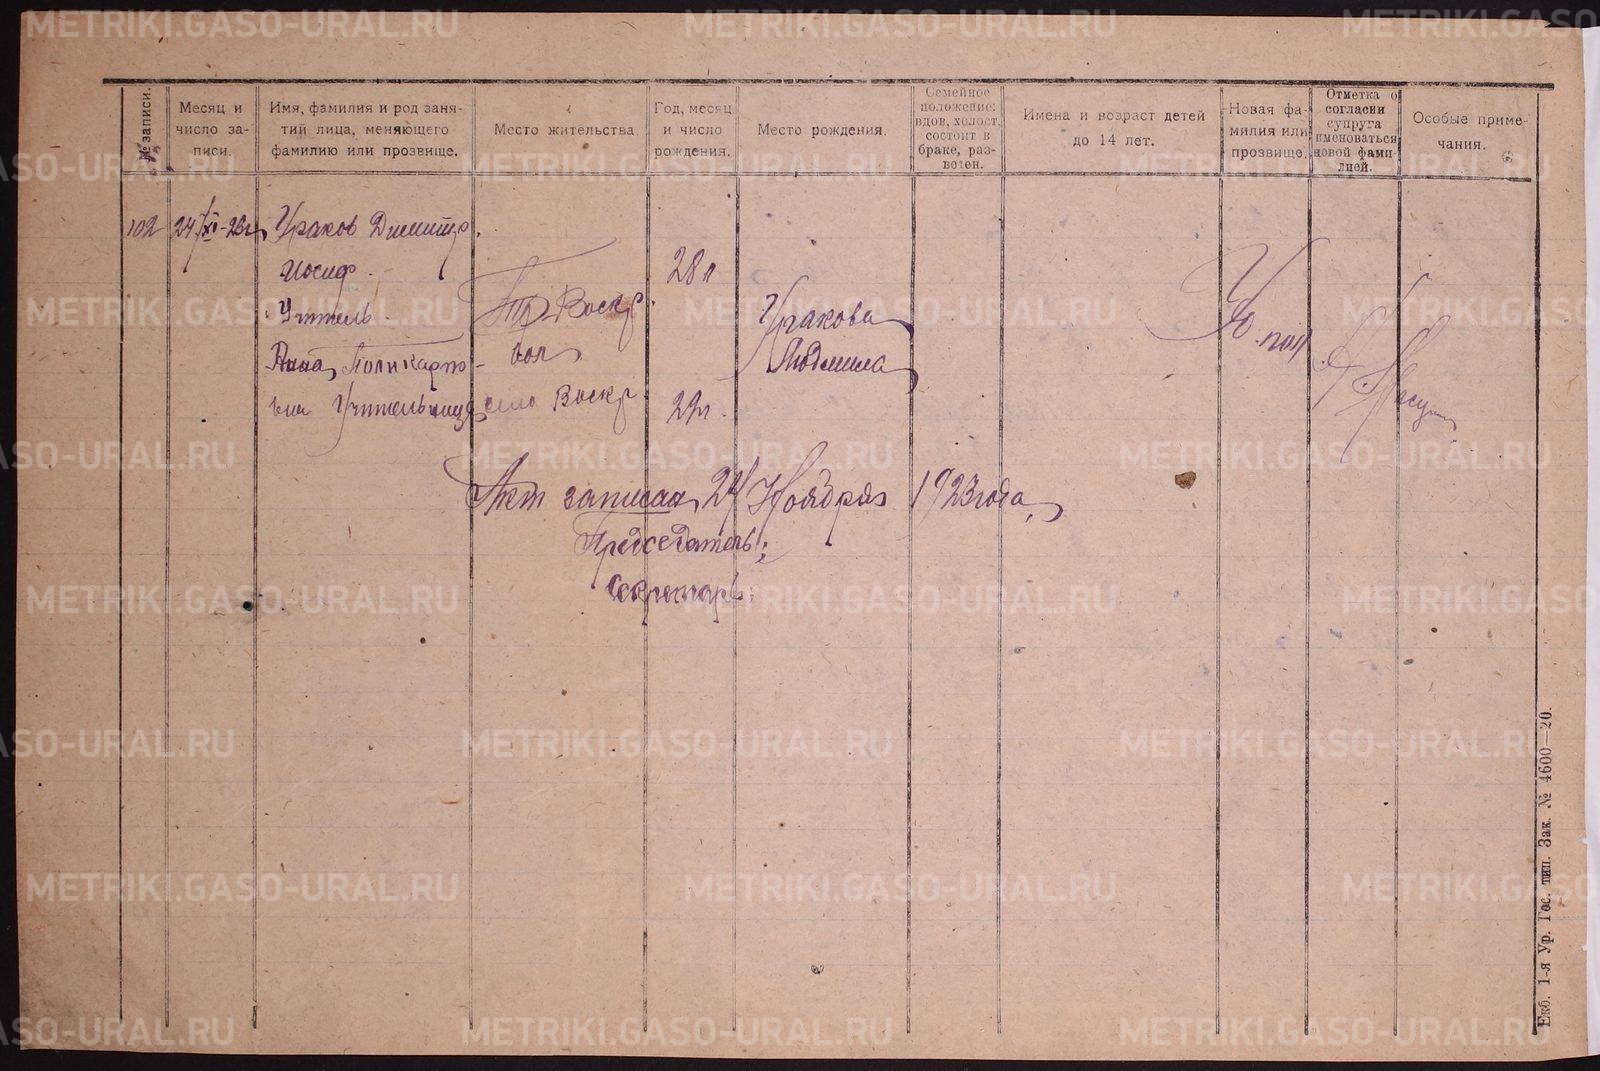 METRIKI.GASO-URAL.RU
№ записи.
Месяц и число записи.
Имя, фамилия и род заня-
тий лица, меняющего
фамилию или прозвище.
Место жительства.
Год, месяц
и число
рождения.
Место рождения.
Семейное
положение:
вдов, холост,
состоит в
браке, раз-
веден.
Имена и возраст детей
до 14 лет.
Новая фа-
милия или
прозвище.
Отметка о
согласии
супруга
именоваться
новой фами-
лией.
Особые приме-
чания.
102
24/XI-23г
Ураков Димитр.
Иосиф.
Учитель.
Анна Поликарпо-
вна Учительница
Воскр.
вол.
село Воскр.
28 л
29 л.
Уракова
Людмила
Акт записан 24 Ноября 1923 года.
Председатель:
Секретарь:
Екб. 1-я Ур. Гос. тип. Зак. № 4600—20.